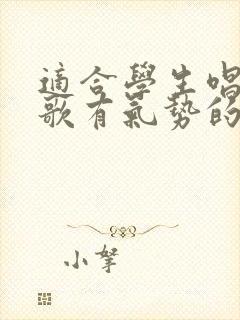 適合學生唱
歌有氣勢的
小孥